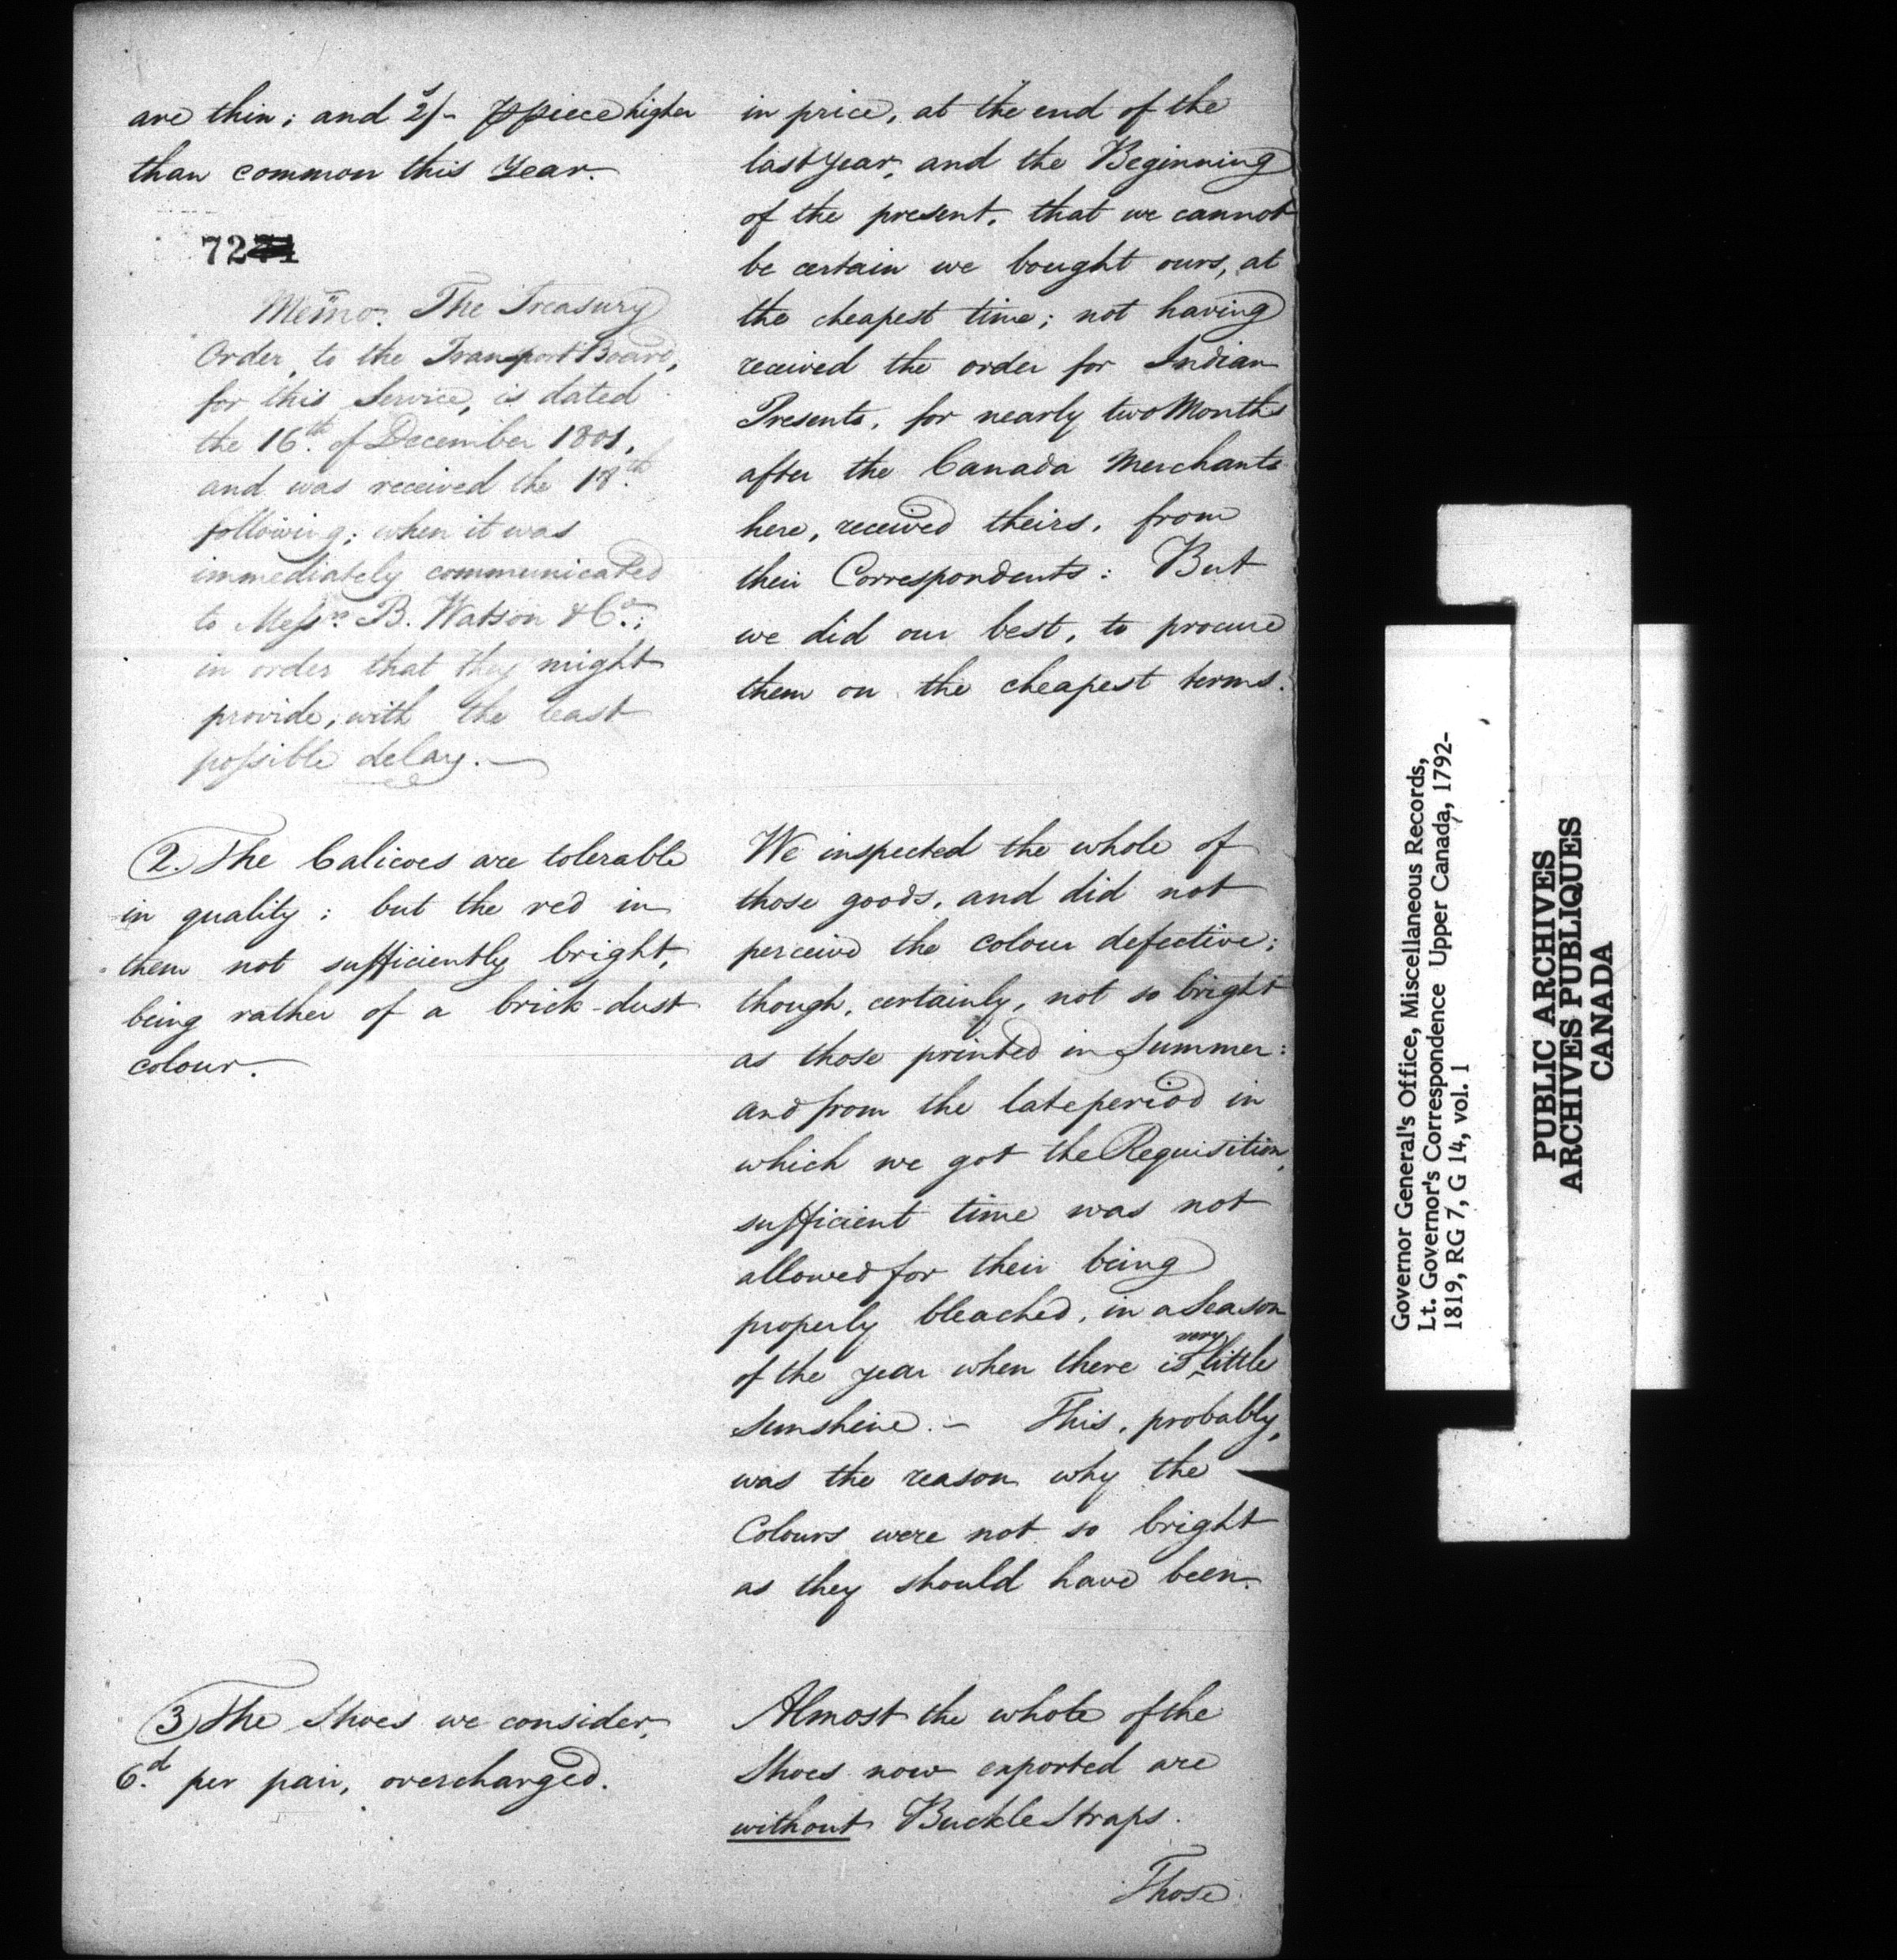 are thin; and 2/- ⅌ piece higher
than common this Year.
72
Memo. The Treasury
Order, to the Transport Board,
for this Service, is dated
the 16th. of December 1801,
and was received the 18th.
following; when it was
immediately communicated
to Messrs. B. Watson & Co.;
in order that they might
provide, with the least
possible delay.—
2. The Calicoes are tolerable
in quality; but the red in
them not sufficiently bright,
being rather of a brick-dust
colour.
3 The Shoes we consider,
6d. per pair, overcharged.
in price, at the end of the
last Year, and the Beginning
of the present, that we cannot
be certain we bought ours, at
the cheapest time; not having
received the order for Indian
Presents, for nearly two Months
after the Canada Merchants
here, received theirs, from
their Correspondents: But
we did our best, to procure
them on the cheapest terms.
We inspected the whole of
those goods, and did not
perceive the colour defective;
though, certainly, not so bright
as those printed in Summer:
and from the late period in
which we got the Requisition,
sufficient time was not
allowed for their being
properly bleached, in a Season
of the year when there is very little
Sunshine.— This, probably,
was the reason why the
Colours were not so bright
as they should have been.
Almost the whole of the
Shoes now exported are
without Buckle Straps.
Those
Governor General's Office, Miscellaneous Records,
Lt. Governor's Correspondence Upper Canada, 1792-
1819, RG 7, G 14, vol. 1
PUBLIC ARCHIVES
ARCHIVES PUBLIQUES
CANADA